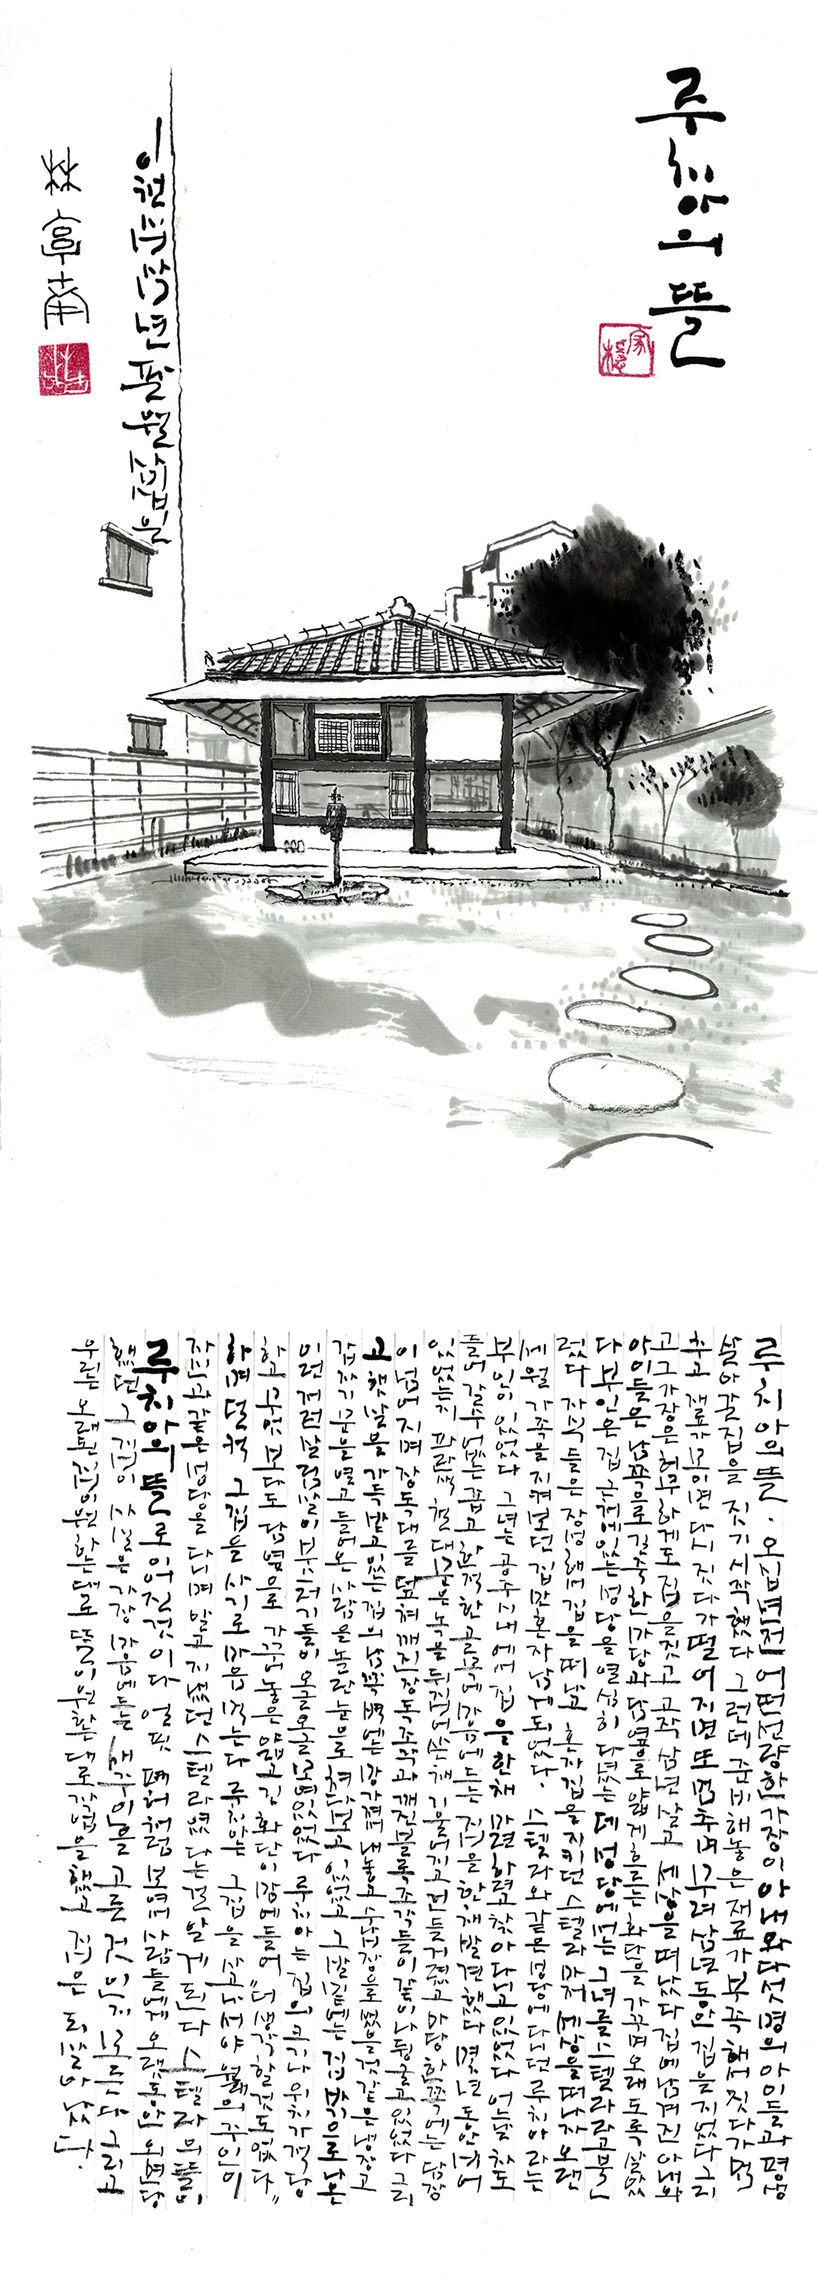 루치아의 뜰
이천십삼년 팔월 삼십일
林亨南
루치아의 뜰. 오십년전 어떤 선량한 가장이 아내와 다섯명의 아이들과 평생
살아갈 집을 짓기 시작했다 그런데 준비해놓은 재료가 부족해서 짓다가 멈
추고 재료가 모이면 다시 짓다가 떨어지면 또 멈추며 무려 삼년 동안 집을 지었다 그리
고 그 가장은 허무하게도 집을 짓고 고작 삼년 살고 세상을 떠났다 집에 남겨진 아내와
아이들은 남쪽으로 길쭉한 마당과 담옆으로 얇게 흐르는 화단을 가꾸며 오래도록 살았
다 부인은 집 근처에 있는 성당을 열심히 다녔는데 성당에서는 그녀를 스텔라라고 불
렀다 자식들은 장성해서 집을 떠났고 혼자 집을 지키던 스텔라마저 세상을 떠나자 오랜
세월 가족을 지켜보던 집만 혼자 남게 되었다. 스텔라와 같은 성당에 다니던 루치아라는
부인이 있었다 그녀는 공주시내에서 집을 한채 마련하려고 찾아다니고 있었다 어느날 차도
들어갈 수 없는 좁고 한적한 골목에 마음에 드는 집을 한채 발견했다 몇년 동안 비어
있었는지 파란색 철대문은 녹을 뒤집어쓴채 기울어지고 흔들거렸고 마당 한쪽에는 담장
이 넘어지며 장독대를 덮쳐 깨진 장독조각과 깨진 블록조각들이 같이 나뒹굴고 있었다 그리
고 햇살을 가득 받고 있는 집의 남쪽벽에는 망가져 내놓고 수납장으로 썼을것 같은 냉장고
갑자기 문을 열고 들어온 사람을 놀란 눈으로 쳐다보고 있었고 그 발밑엔 집밖으로 나온
이런저런 살림살이 부스러기들이 오글오글 모여있었다 루치아는 집의 크기나 위치가 적당
하고 무엇보다도 담옆으로 가꾸어놓은 얇고 긴 화단이 맘에 들어 "더 생각할것도 없다"
하며 덜컥 그 집을 사기로 마음먹는다 루치아는 그 집을 사고나서야 원래의 주인이
자신과 같은 성당을 다니며 알고 지냈던 스텔라였다는걸 알게된다 스텔라의 뜰이
루치아의 뜰로 이어진것이다 얼핏 폐허처럼 보여 사람들에게 오랫동안 외면당
했던 그 집이 사실은 가장 마음에 드는 새주인을 고른 것인지 모른다 그리고
우리는 오래된 집이 원하는대로 뜰이 원하는대로 작업을 했고 집은 되살아났다.